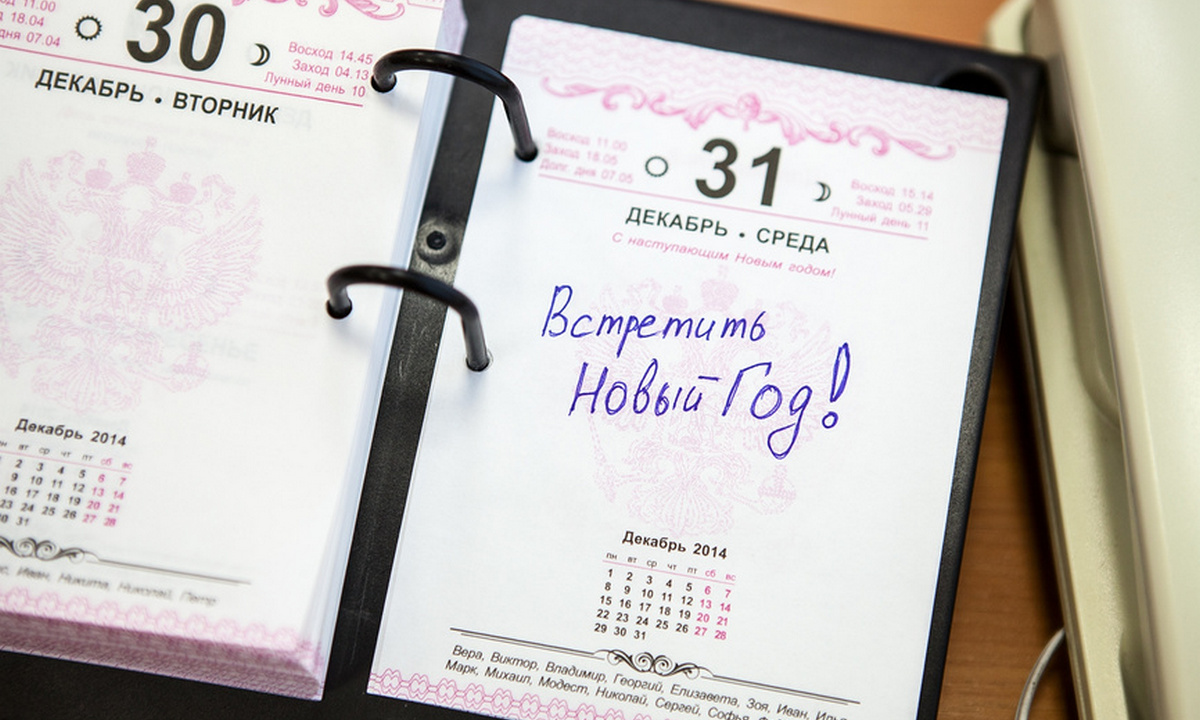 11.00
18.04
дня 07.04
30
Восход 14.45
Заход 04.13
Лунный день 10
ДЕКАБРЬ • ВТОРНИК
Декабрь 2014
вт ср чт пт сб вс
2 3 4 5 6 7
9 10 11 12 13 14
16 17 18 19 20 21
23 24 25 26 27 28
30 31
Иван, Никита, Николай, Петр
Восход 11.00
Заход 18.05
Долг. дня 07.05
31
Восход 15.14
Заход 05.29
Лунный день 11
ДЕКАБРЬ • СРЕДА
С наступающим Новым годом!
Встретить
Новый Год!
Декабрь 2014
пн вт ср чт пт сб вс
1 2 3 4 5 6 7
8 9 10 11 12 13 14
15 16 17 18 19 20 21
22 23 24 25 26 27 28
29 30 31
Вера, Виктор, Владимир, Георгий, Елизавета, Зоя, Иван,
Марк, Михаил, Модест, Николай, Сергей, Софья,